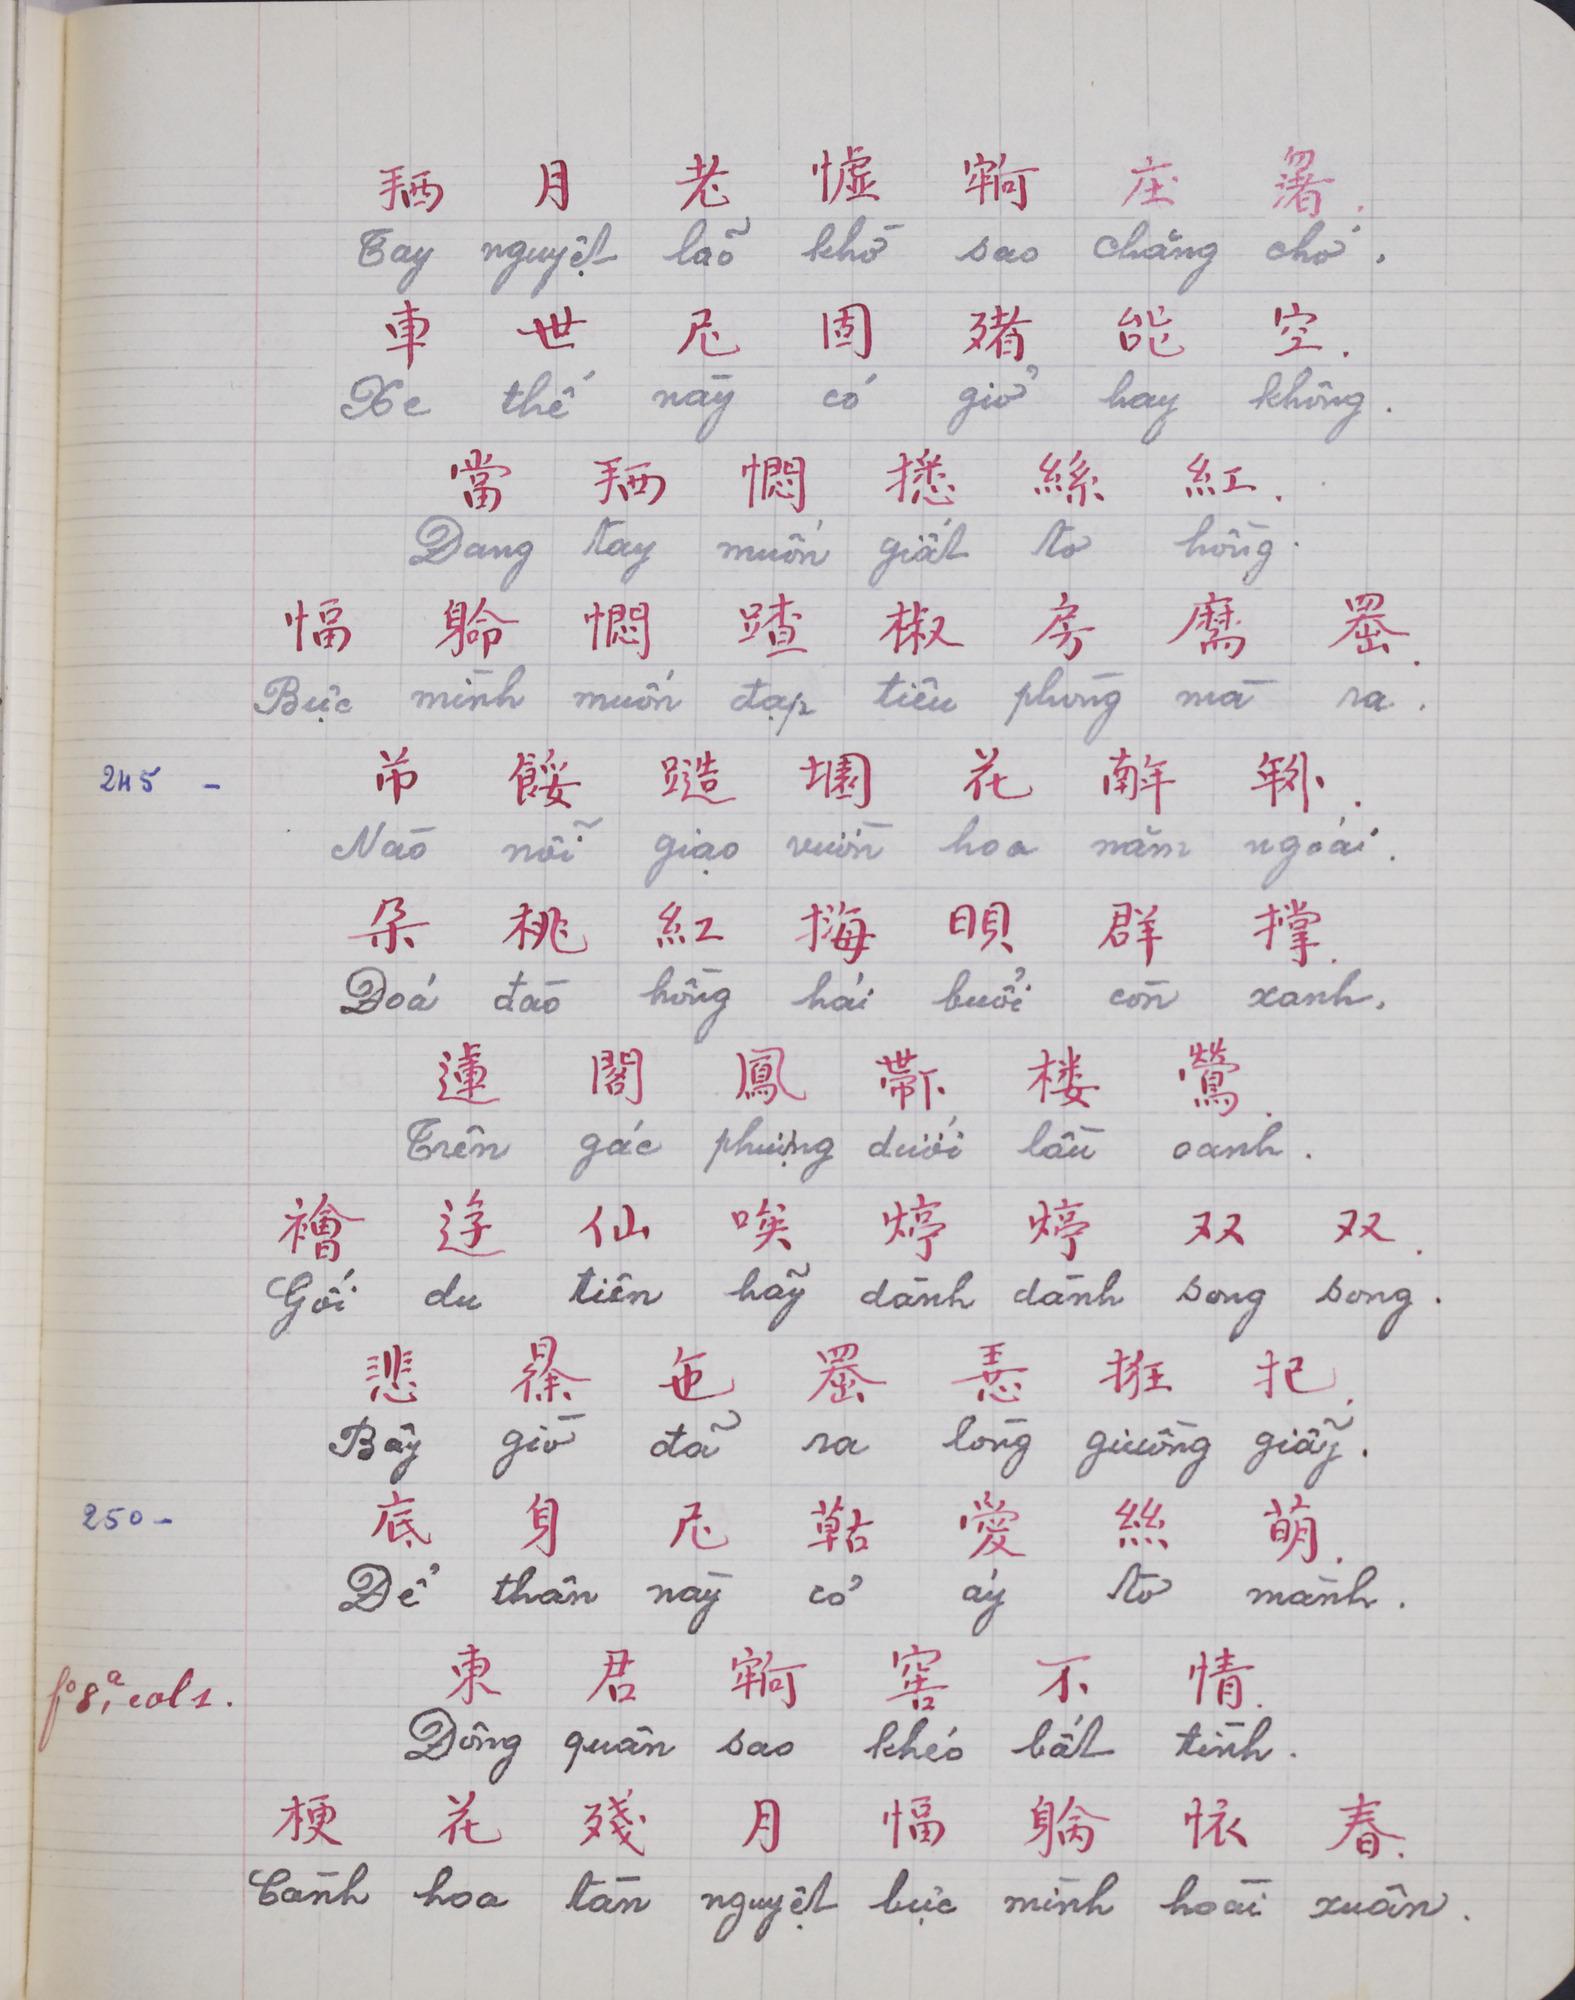 𢬣 月 老 𢠐 牢 庄 署.
Tay nguyệt lão khờ sao chăng chớ.
車 世 尼 固 󰝂 能 空.
Xe thế này có giở hay không.
當 𢬣 悶 𢴑 絲 紅.
Dang tay muốn giật tơ hồng.
愊 𨉟 悶 踏 椒 房 𦓡 𠚢.
Bực mình muốn đạp tiêu phòng mà ra.
245 - 芇 餒 𨀐 園 花 𢆥 外.
Nào nỗi giạo vườn hoa năm ngoái.
朶 桃 紅 挴 𣇜 群 撑.
Đoá đào hồng hái buổi còn xanh.
蓮 閣 鳳 𤲂 楼 鶯.
Trên gác phượng dưới lầu oanh.
襘 逰 仙 唉 𤇊 𤇊 双 双.
Gối du tiên hãy dành dành song song.
悲 𣇞 㐌 𠚢 𢚸 抂 把.
Bây giờ đã ra lòng giường giẫy.
250 - 底 身 尼 𦹵 愛 絲 萌.
Để thân này cỏ áy tơ mành.
fº 8,ª col 1. 東 君 牢 窖 不 情.
Đông quân sao khéo bất tình.
梗 花 殘 月 愊 𨉟 怀 春.
Cành hoa tàn nguyệt bực mình hoài xuân.